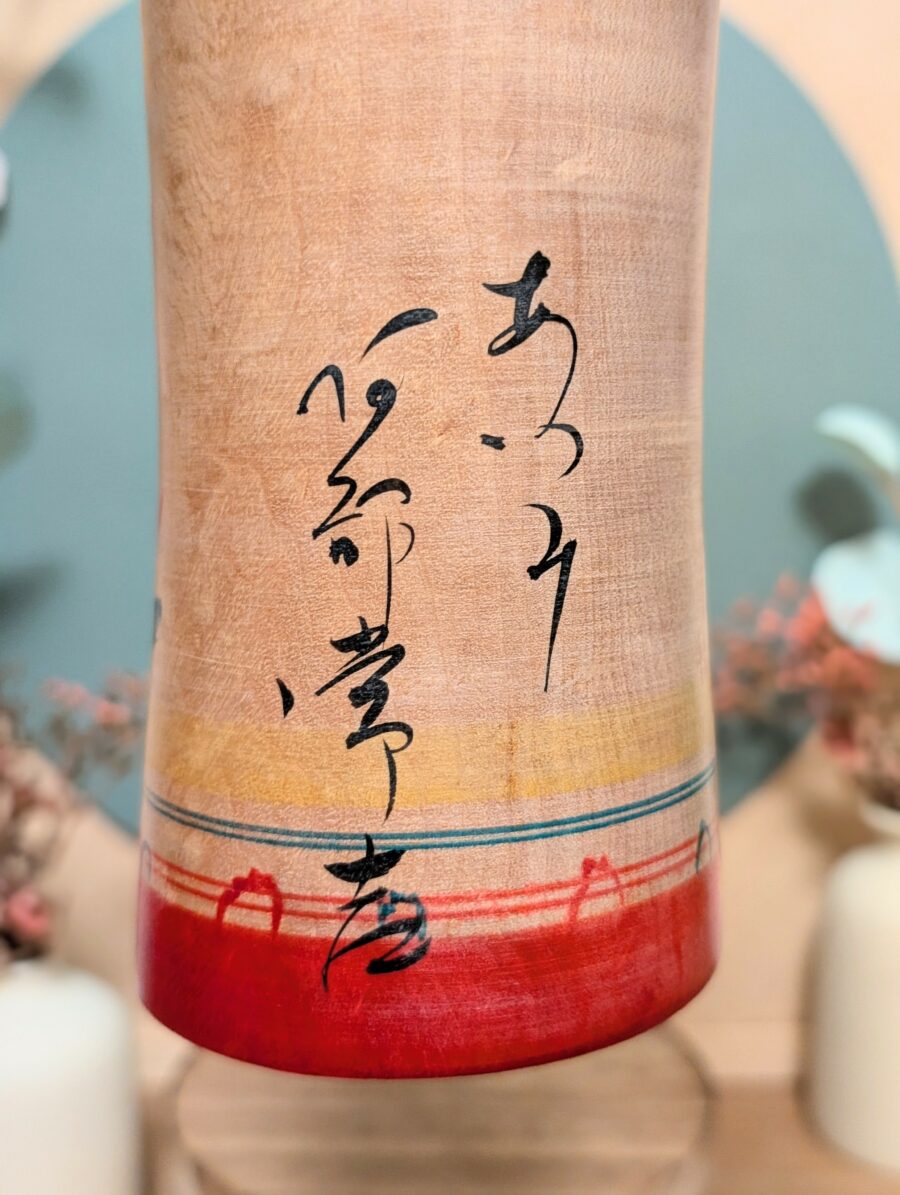 あつみ
阿部常吉